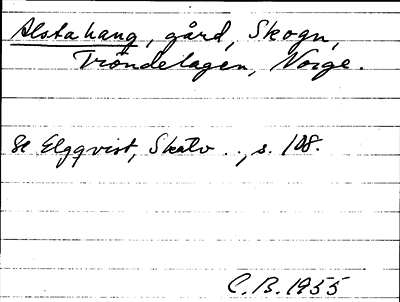 Alstahaug, gård, Skogn,
Tröndelagen, Norge.
Se Elgqvist, Skalv .., s. 108.
C.B. 1955